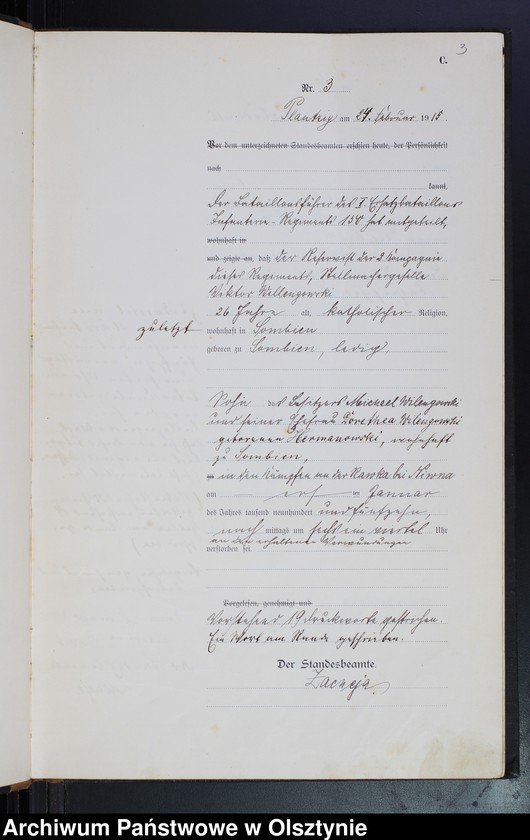 3
C.
Nr. 3
Plautzig am 24. Februar 1915
Vor dem unterzeichneten Standesbeamten erschien heute, der Persönlichkeit
nach
kannt,
Der Bataillonsführer des I. Ersatzbataillons
Infanterie-Regiments 154 hat mitgeteilt,
wohnhaft in
und zeigte an, daß der Reservist der 2 Kompagnie
dieses Regiments, Stellmachergeselle
Viktor Willengowski
26 Jahre alt, katholischer Religion,
zuletzt wohnhaft in Sombien
geboren zu Sombien, ledig,
Sohn des Besitzers Michael Wilengowski
und seiner Ehefrau Dorothea Wilengowski
geborenen Hermanowski, wohnhaft
zu Sombien,
in den Kämpfen an der Rawka bei
am Januar
des Jahres tausend neunhundert und fünfzehn,
nach mittags um viertel Uhr
an den erhaltenen Verwundungen
verstorben sei.
Vorgelesen, genehmigt und
Vorstehend 19 Druckworte gestrichen.
Ein Wort am Rande geschrieben.
Der Standesbeamte.
Archiwum Państwowe w Olsztynie